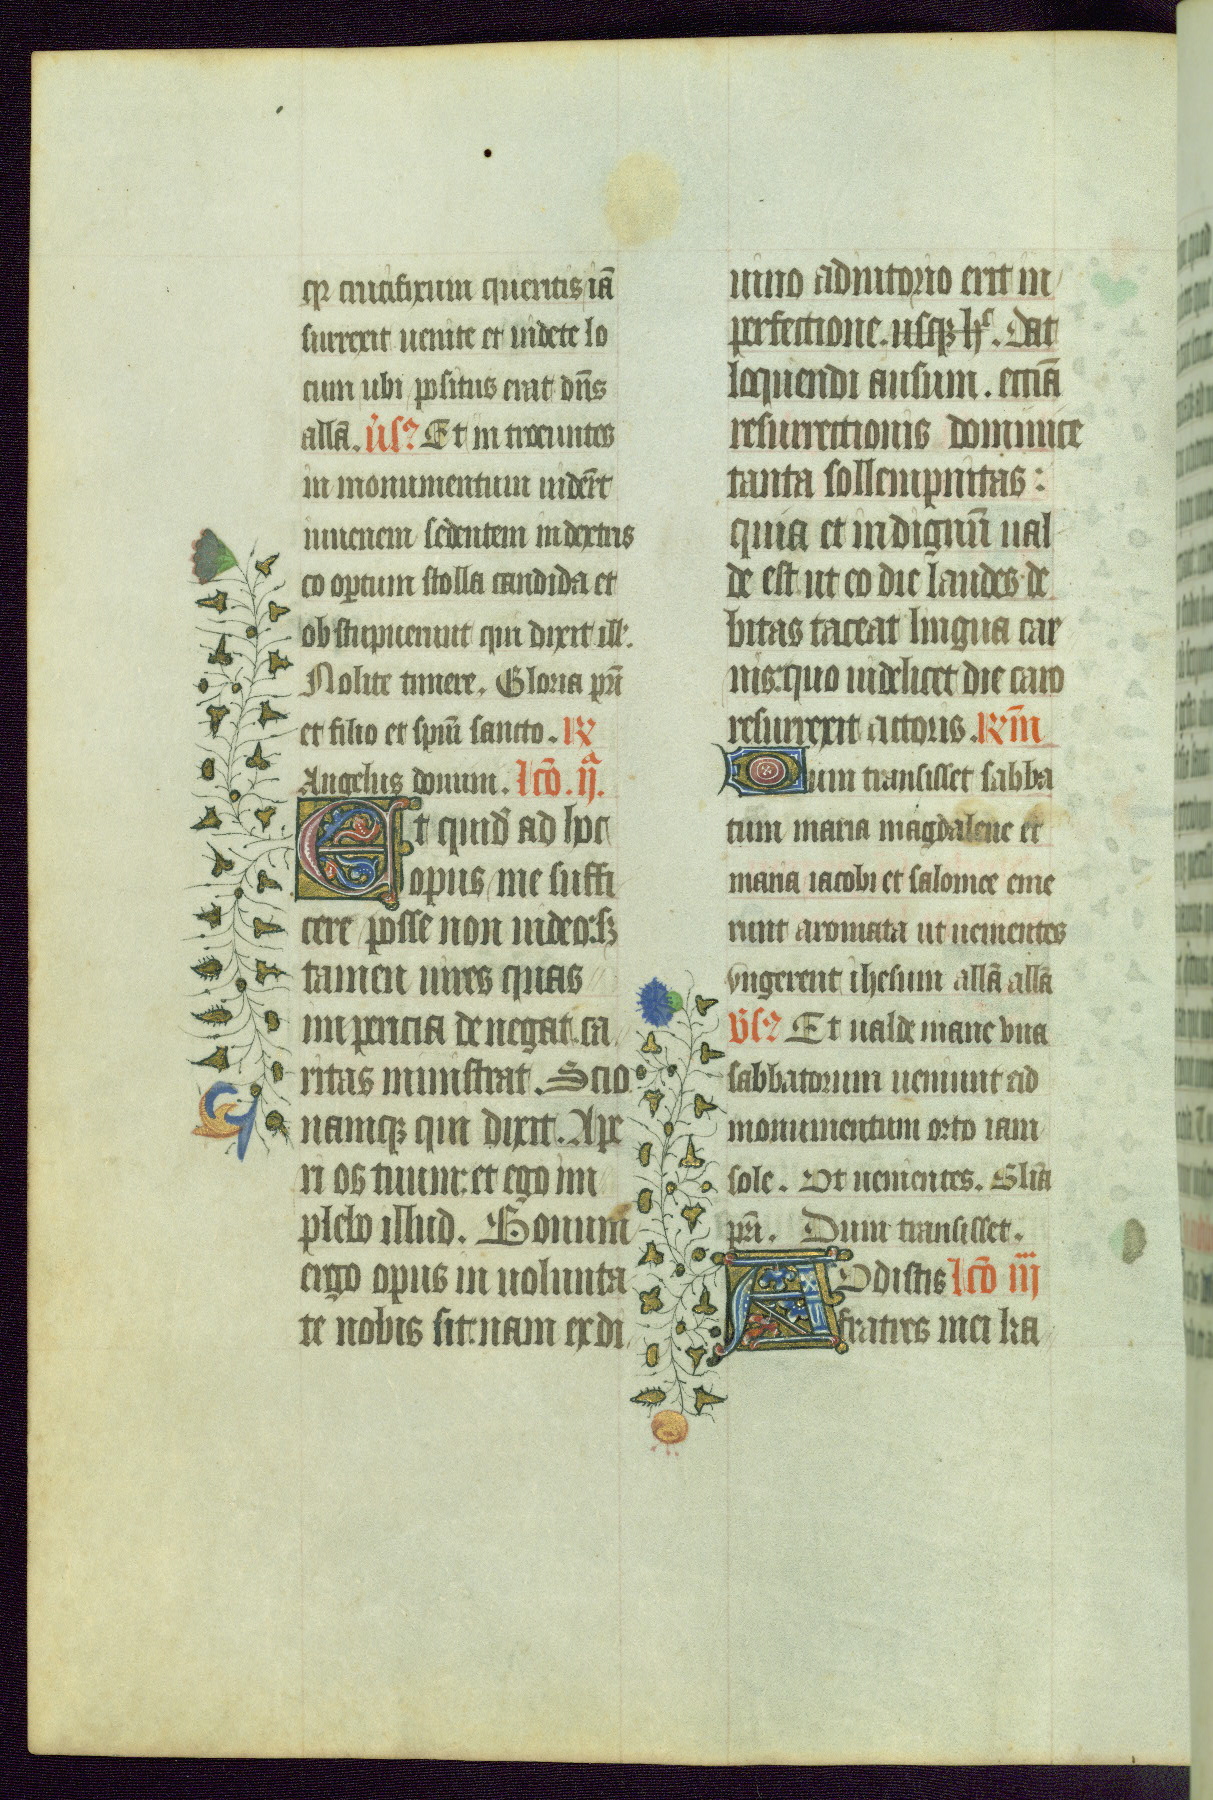 qr crucifixum queritis iā
surrexit uenite et uidete lo
cum ubi positus erat dn̄s
allā. v̄s Et in troeuntes
in monumentum uider̄t
iuuenem sedentem in dextris
co optum stolla candida et
ob stupuerunt qui dixit ill'.
Nolite timere. Gloria pr̄i
et filio et spiū sancto. R
Angelus domini. lcō. ij.
Et quid ad hoc
opus me suffi
cere posse non uideo: sꝫ
tamen uires quas
im pericia de negat. ca
ritas ministrat. Scio
namqꝫ qui dixit. Ape
ri os tuum: et ego im
plebo illud. Bonum
ergo opus in uolunta
te nobis sit: nam ex di
uino adiutorio erit in
perfectione. usqꝫ hͨ. Dat
loquendi ausum. etiā
resurrectionis dominice
tanta sollempnitas:
quia et in dignū ual
de est ut eo die laudes de
bitas taceat lingua car
nis: quo uidelicet die caro
resurrexit actoris. Rm̄
Dum transisset sabba
tum maria magdalene et
maria iacobi et salomee eme
runt aromata ut uenientes
vngerent ihesum allā allā
v̄s Et ualde mane vna
sabbatorum ueniunt ad
monumentum orto iam
sole. Vt uenientes. Glīa
pr̄i. Dum transisset.
AVdistis lcō iij
fratres mei ka